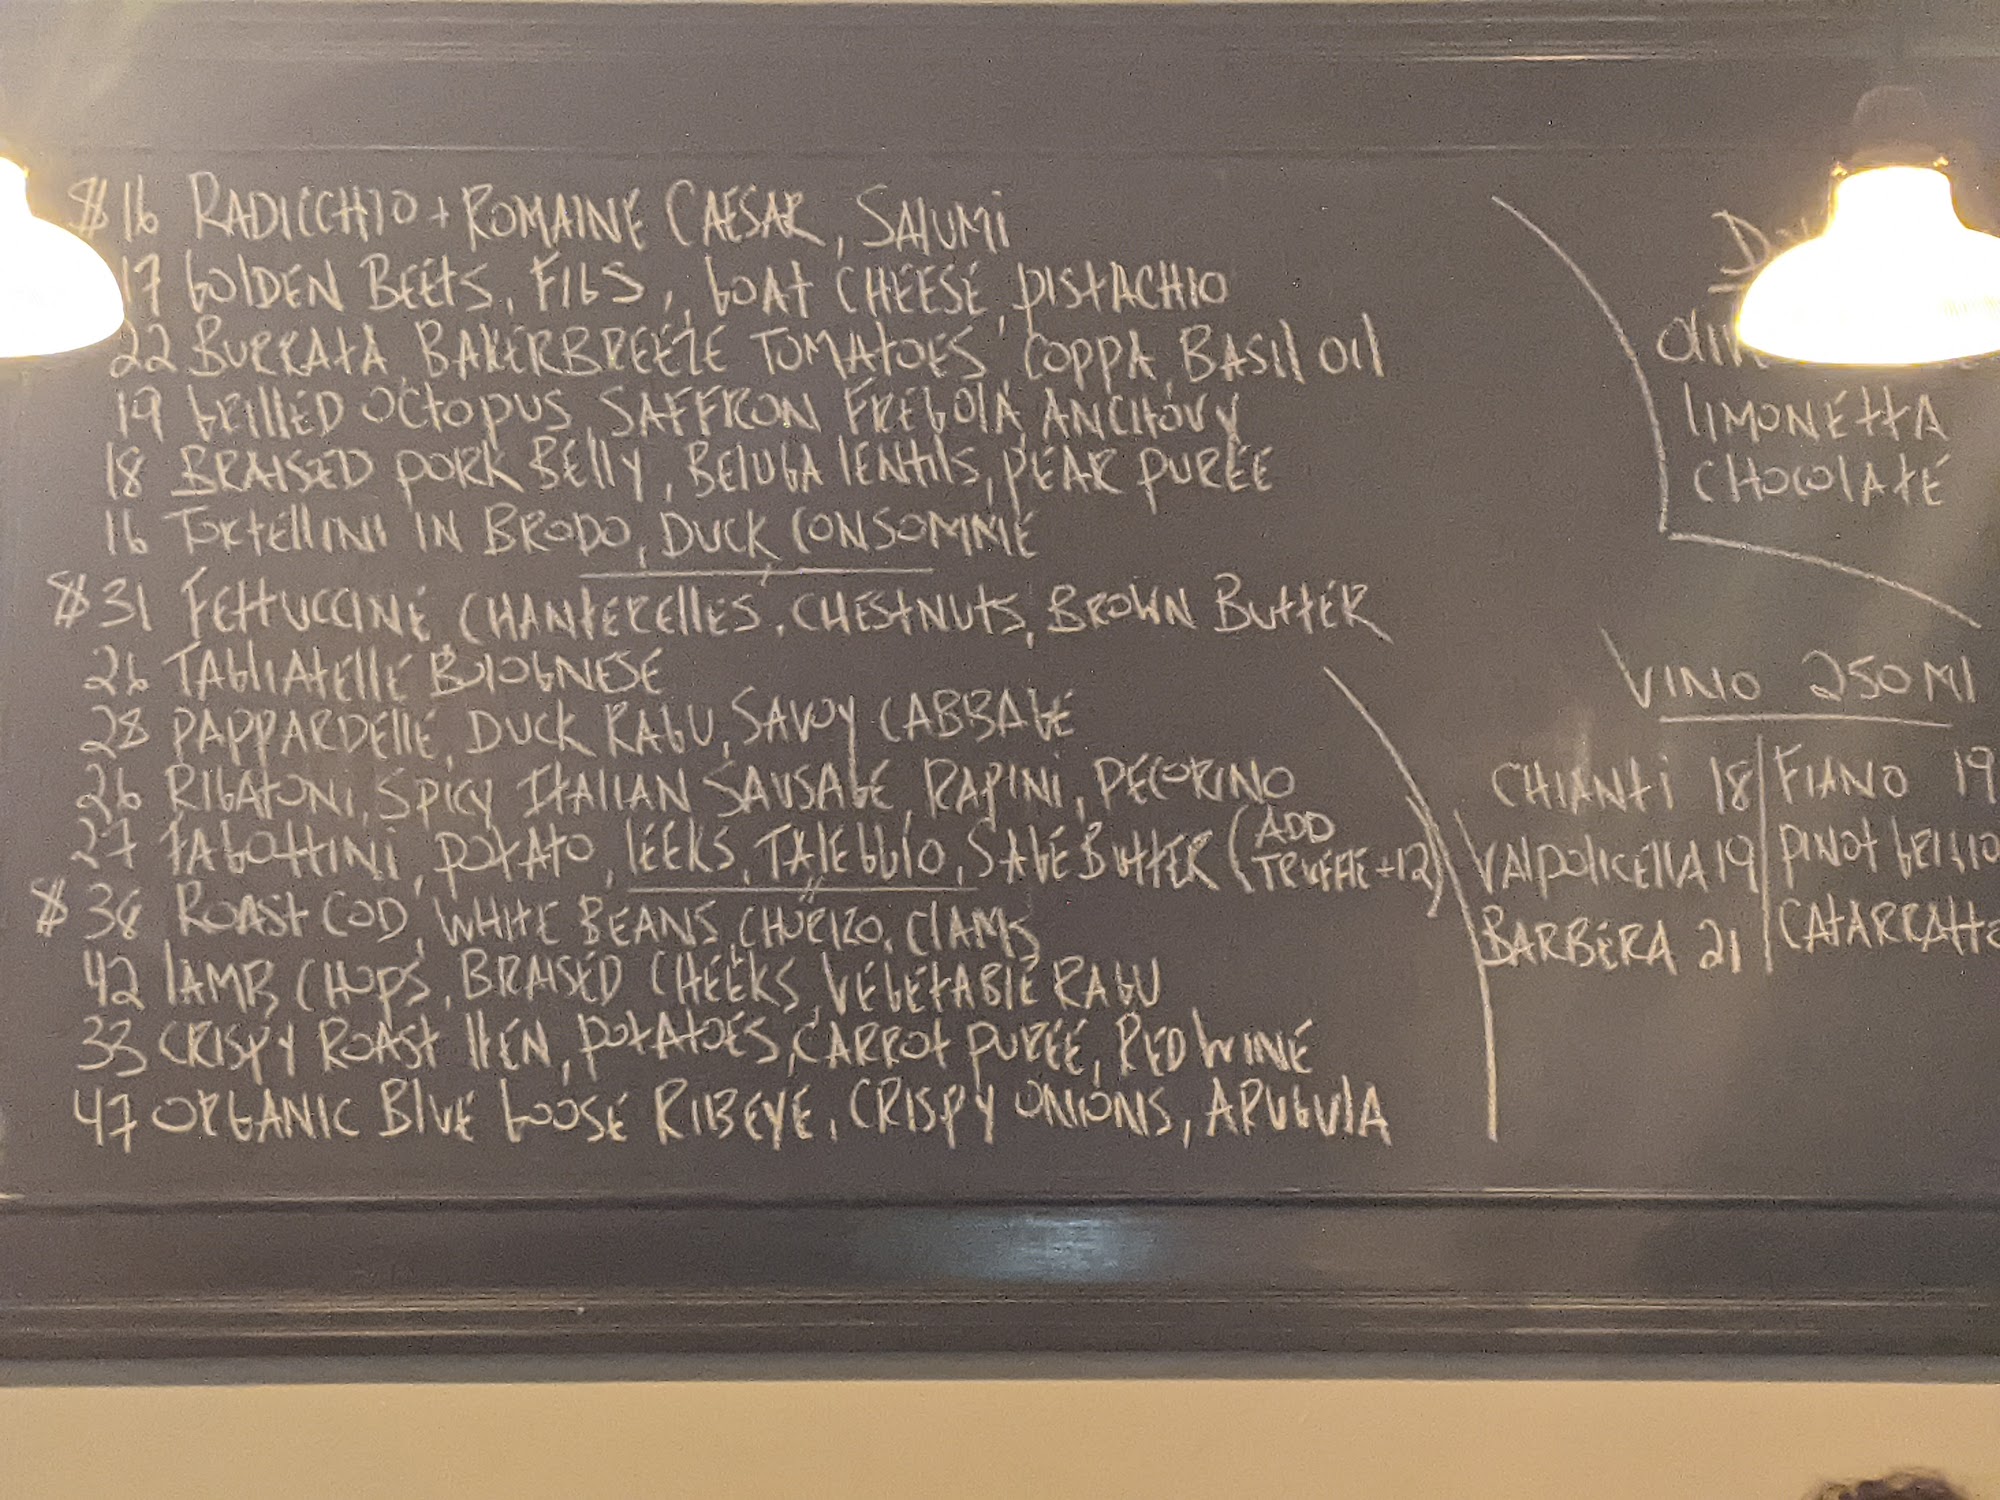 $16 RADICCHIO + ROMAINE CAESAR, SALUMI
17 GOLDEN BEETS, FIGS, GOAT CHEESE, PISTACHIO
22 BURRATA, BAKERBREEZE TOMATOES, COPPA, BASIL OIL
19 GRILLED OCTOPUS, SAFFRON FREGOLA, ANCHOVY
18 BRAISED PORK BELLY, BELUGA LENTILS, PEAR PURÉE
16 TORTELLINI IN BRODO, DUCK CONSOMMÉ
$31 FETTUCCINE, CHANTERELLES, CHESTNUTS, BROWN BUTTER
26 TAGLIATELLE BOLOGNESE
28 PAPPARDELLE, DUCK RAGU, SAVOY CABBAGE
26 RIGATONI, SPICY ITALIAN SAUSAGE, RAPINI, PECORINO
27 FAGOTTINI, POTATO, LEEKS, TALEGGIO, SAGE BUTTER (ADD TRUFFLE +12)
$38 ROAST COD, WHITE BEANS, CHORIZO, CLAMS
42 LAMB CHOPS, BRAISED CHEEKS, VEGETABLE RAGU
33 CRISPY ROAST HEN, POTATOES, CARROT PURÉE, RED WINE
47 ORGANIC BLUE GOOSE RIBEYE, CRISPY ONIONS, ARUGULA
LIMONETTA
CHOCOLATE
VINO 250 Ml
CHIANTI 18
VALPOLICELLA 19
BARBERA 21
FIANO 19
PINOT GRIGIO
CATARRATTO